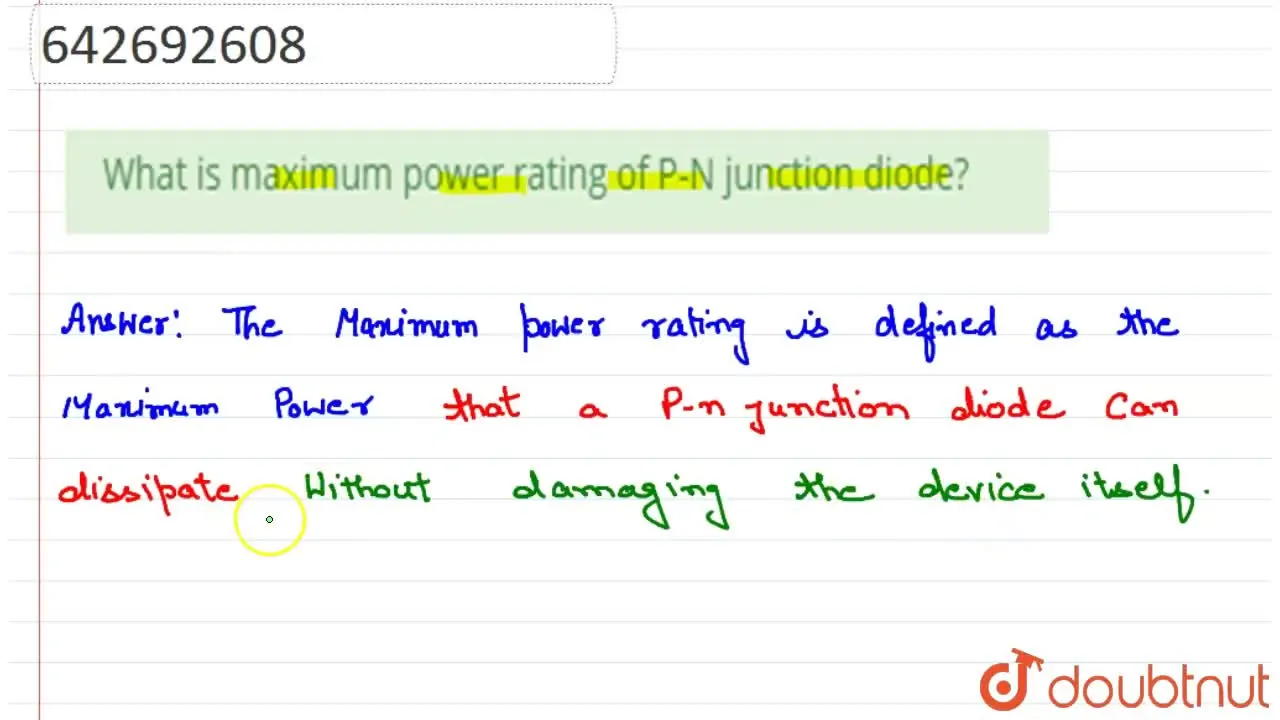 642692608
What is maximum power rating of P-N junction diode?
Answer: The Maximum power rating is defined as the
Maximum Power that a P-n junction diode can
dissipate without damaging the device itself.
doubtnut